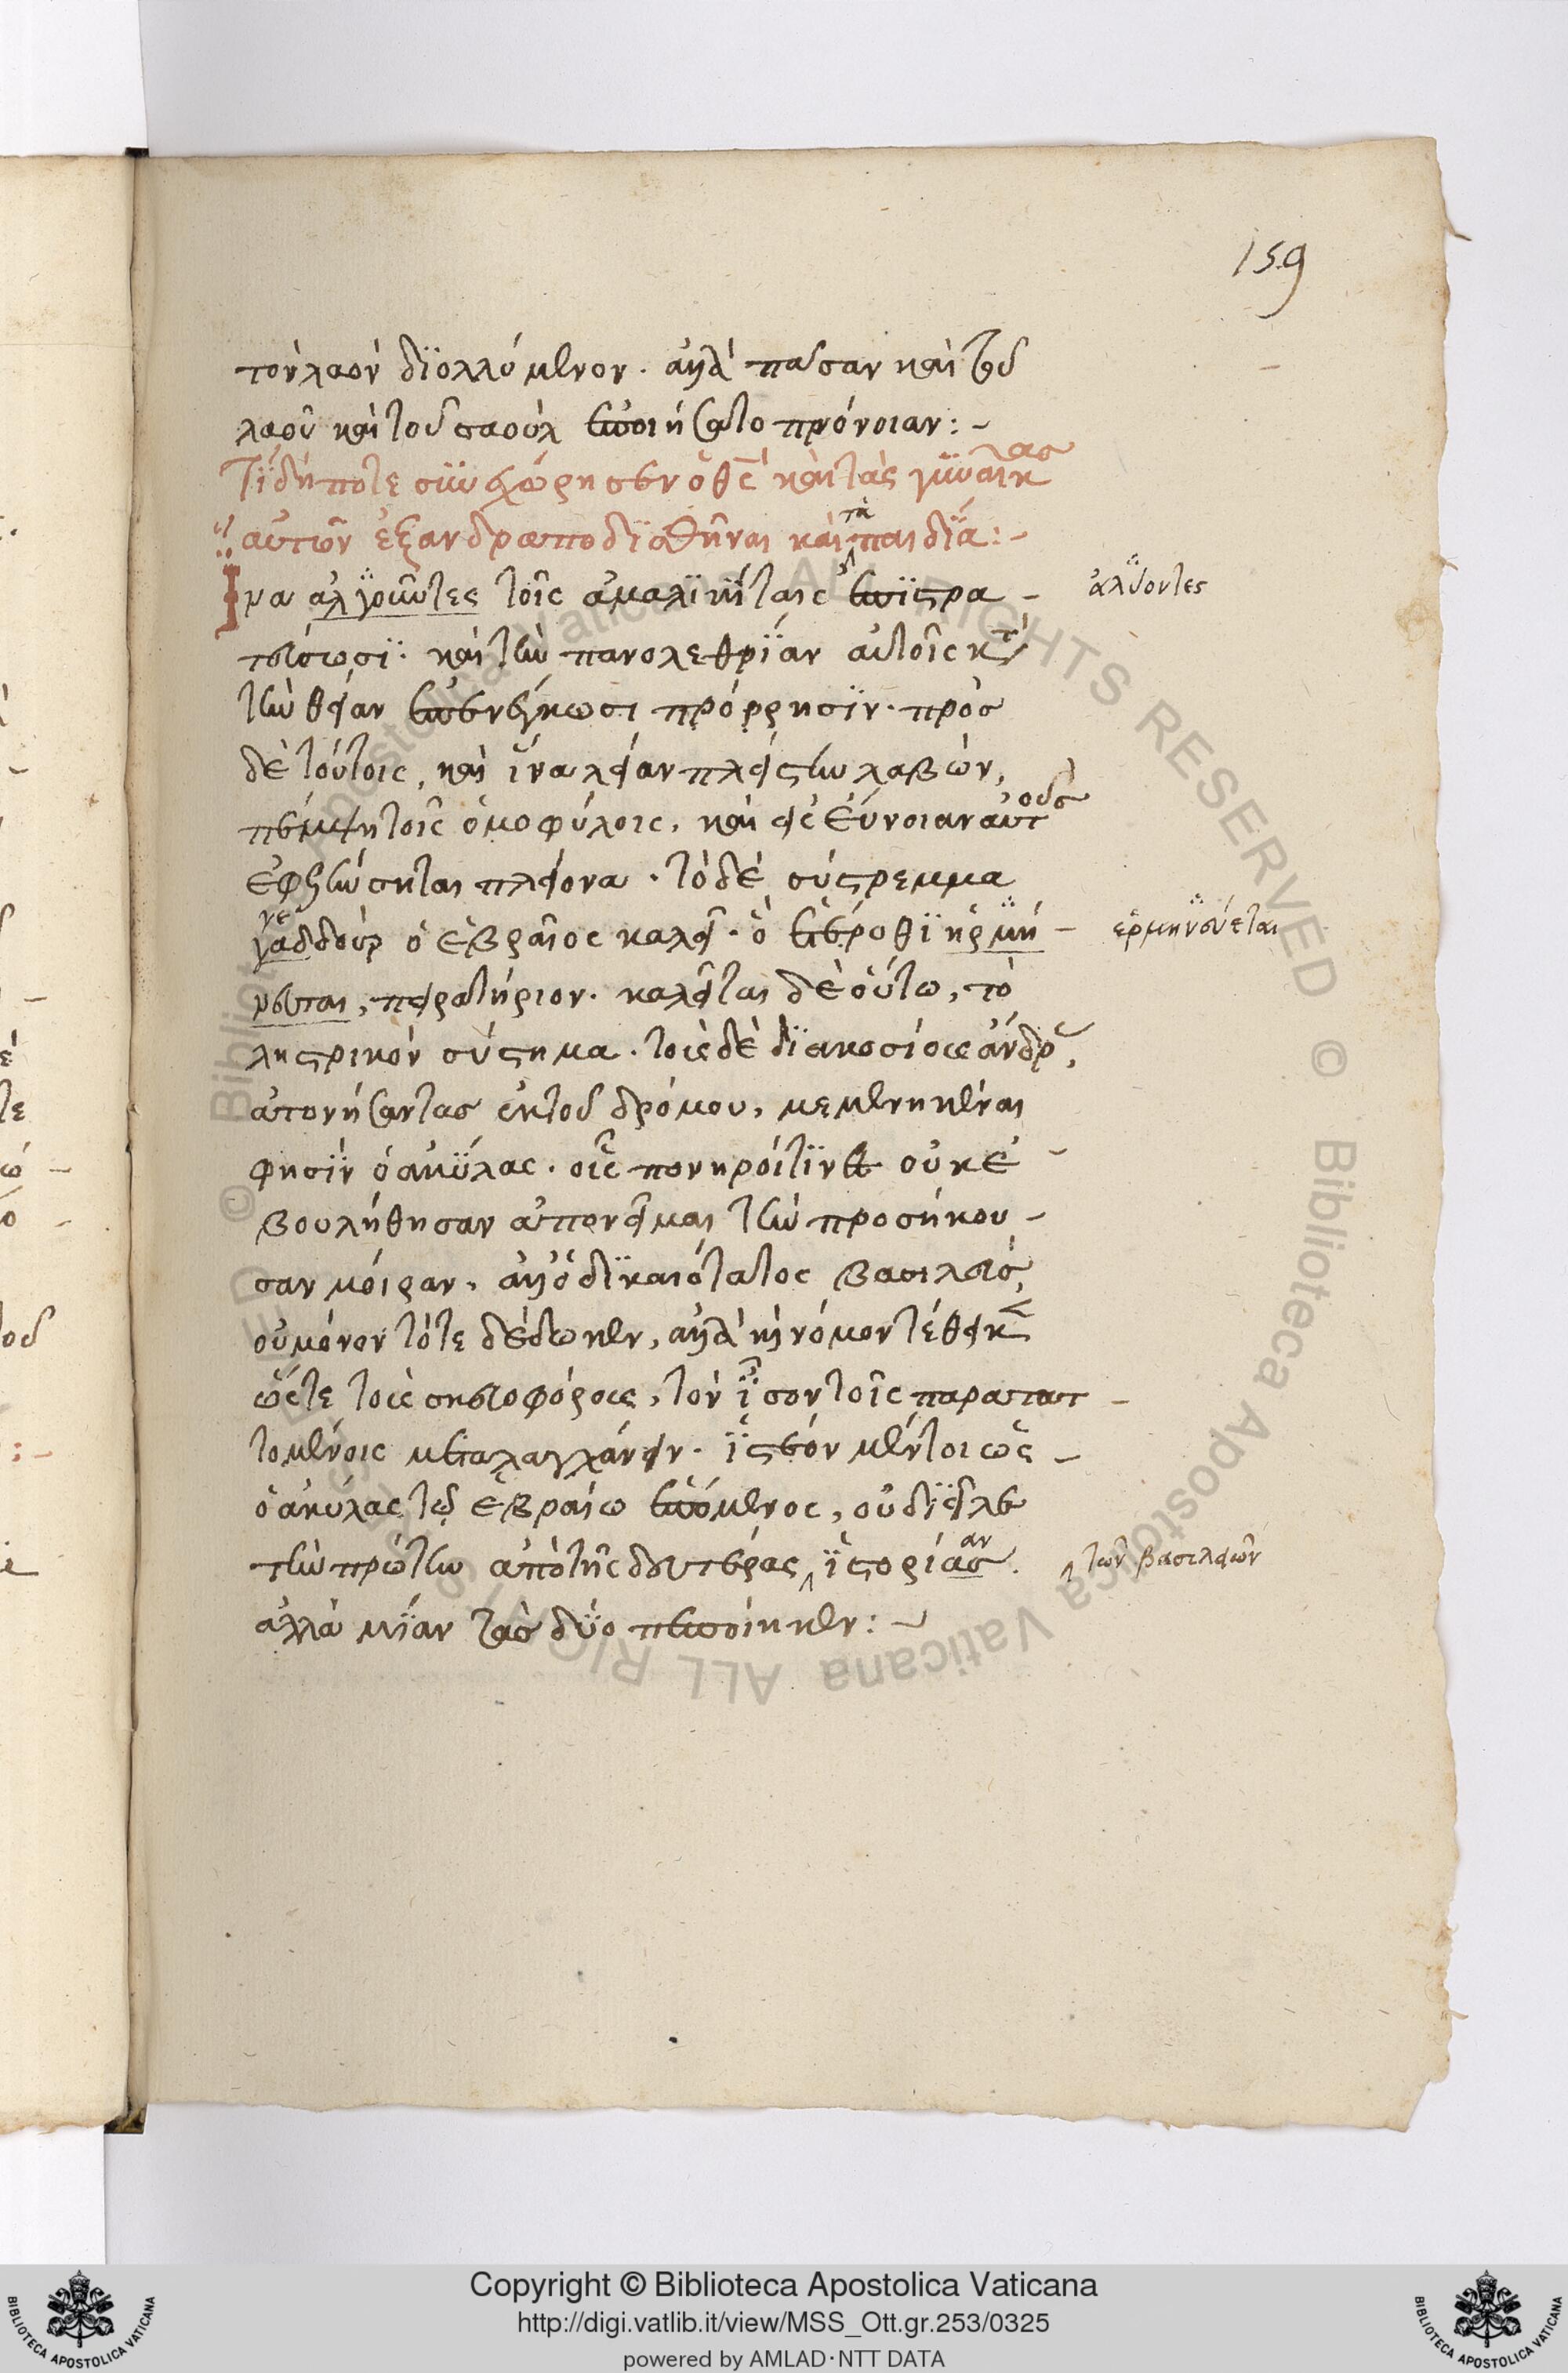 159
τὸν λαὸν διολλύμενον. ἀλλὰ πᾶσαν καὶ τοῦ
λαοῦ καὶ τοῦ σαοὺλ ἐποιήσατο πρόνοιαν:-
Τί δήποτε συνεχώρησεν ὁ θς̅ καὶ τὰς γυναῖκας
αὐτῶν ἐξανδραποδισθῆναι καὶ τὰ παιδία:-
Ἵνα ἀλγοῦντες τοῖς ἀμαλικίταις ἐπιστρα
τεύσωσι. καὶ τὴν πανολεθρίαν αὐτοῖς κατὰ
τὴν θείαν ἐπενέγκωσι πρόρρησιν. πρὸς
δὲ τούτοις, καὶ ἵνα λείαν πλείστην λαβὼν,
πέμψῃ τοῖς ὁμοφύλοις, καὶ εἰς εὔνοιαν αὐτοὺς
ἐφελκύσηται πλείονα. τὸ δὲ σύστρεμμα
γε
γαδδοὺρ ὁ ἑβραῖος καλεῖ. ὃ ἑτέρωθι ἡρμή
νευται, πειρατήριον. καλεῖται δὲ οὕτω, τὸ
ληστρικὸν σύστημα. τοὺς δὲ διακοσίους ἄνδρας,
ἀτονήσαντας ἐκ τοῦ δρόμου, μεμενηκέναι
φησὶν ὁ ἀκύλας. οἷς πονηροί τινες οὐκ ἐ
βουλήθησαν ἀπονεῖμαι τὴν προσήκου
σαν μοῖραν. ἀλλ' ὁ δικαιότατος βασιλεὺς,
οὐ μόνον τότε δέδωκεν, ἀλλὰ καὶ νόμον τέθεικεν
ὥστε τοὺς σκευοφόρους, τὸν ἴσον τοῖς παρατατ
τομένοις μεταλαγχάνειν. ἰστέον μέντοι ὡς
ὁ ἀκύλας τῷ ἑβραίῳ ἑπόμενος, οὐ διεῖλε
τὴν πρώτην ἀπὸ τῆς δευτέρας ἱστορίας.
αν
ἀλλὰ μίαν τὰς δύο πεποίηκεν:-
ἀλύοντες
ἑρμηνεύεται
τῶν βασιλειῶν
Copyright © Biblioteca Apostolica Vaticana
http://digi.vatlib.it/view/MSS_Ott.gr.253/0325
powered by AMLAD·NTT DATA